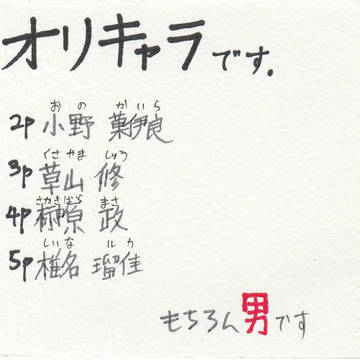 オリキャラです。
おの かいら
2p 小野 菓伊良
くさやま しゅう
3p 草山 修
さかきばら まさ
4p 榊原 政
しいな ルカ
5p 椎名 瑠佳
もちろん男です